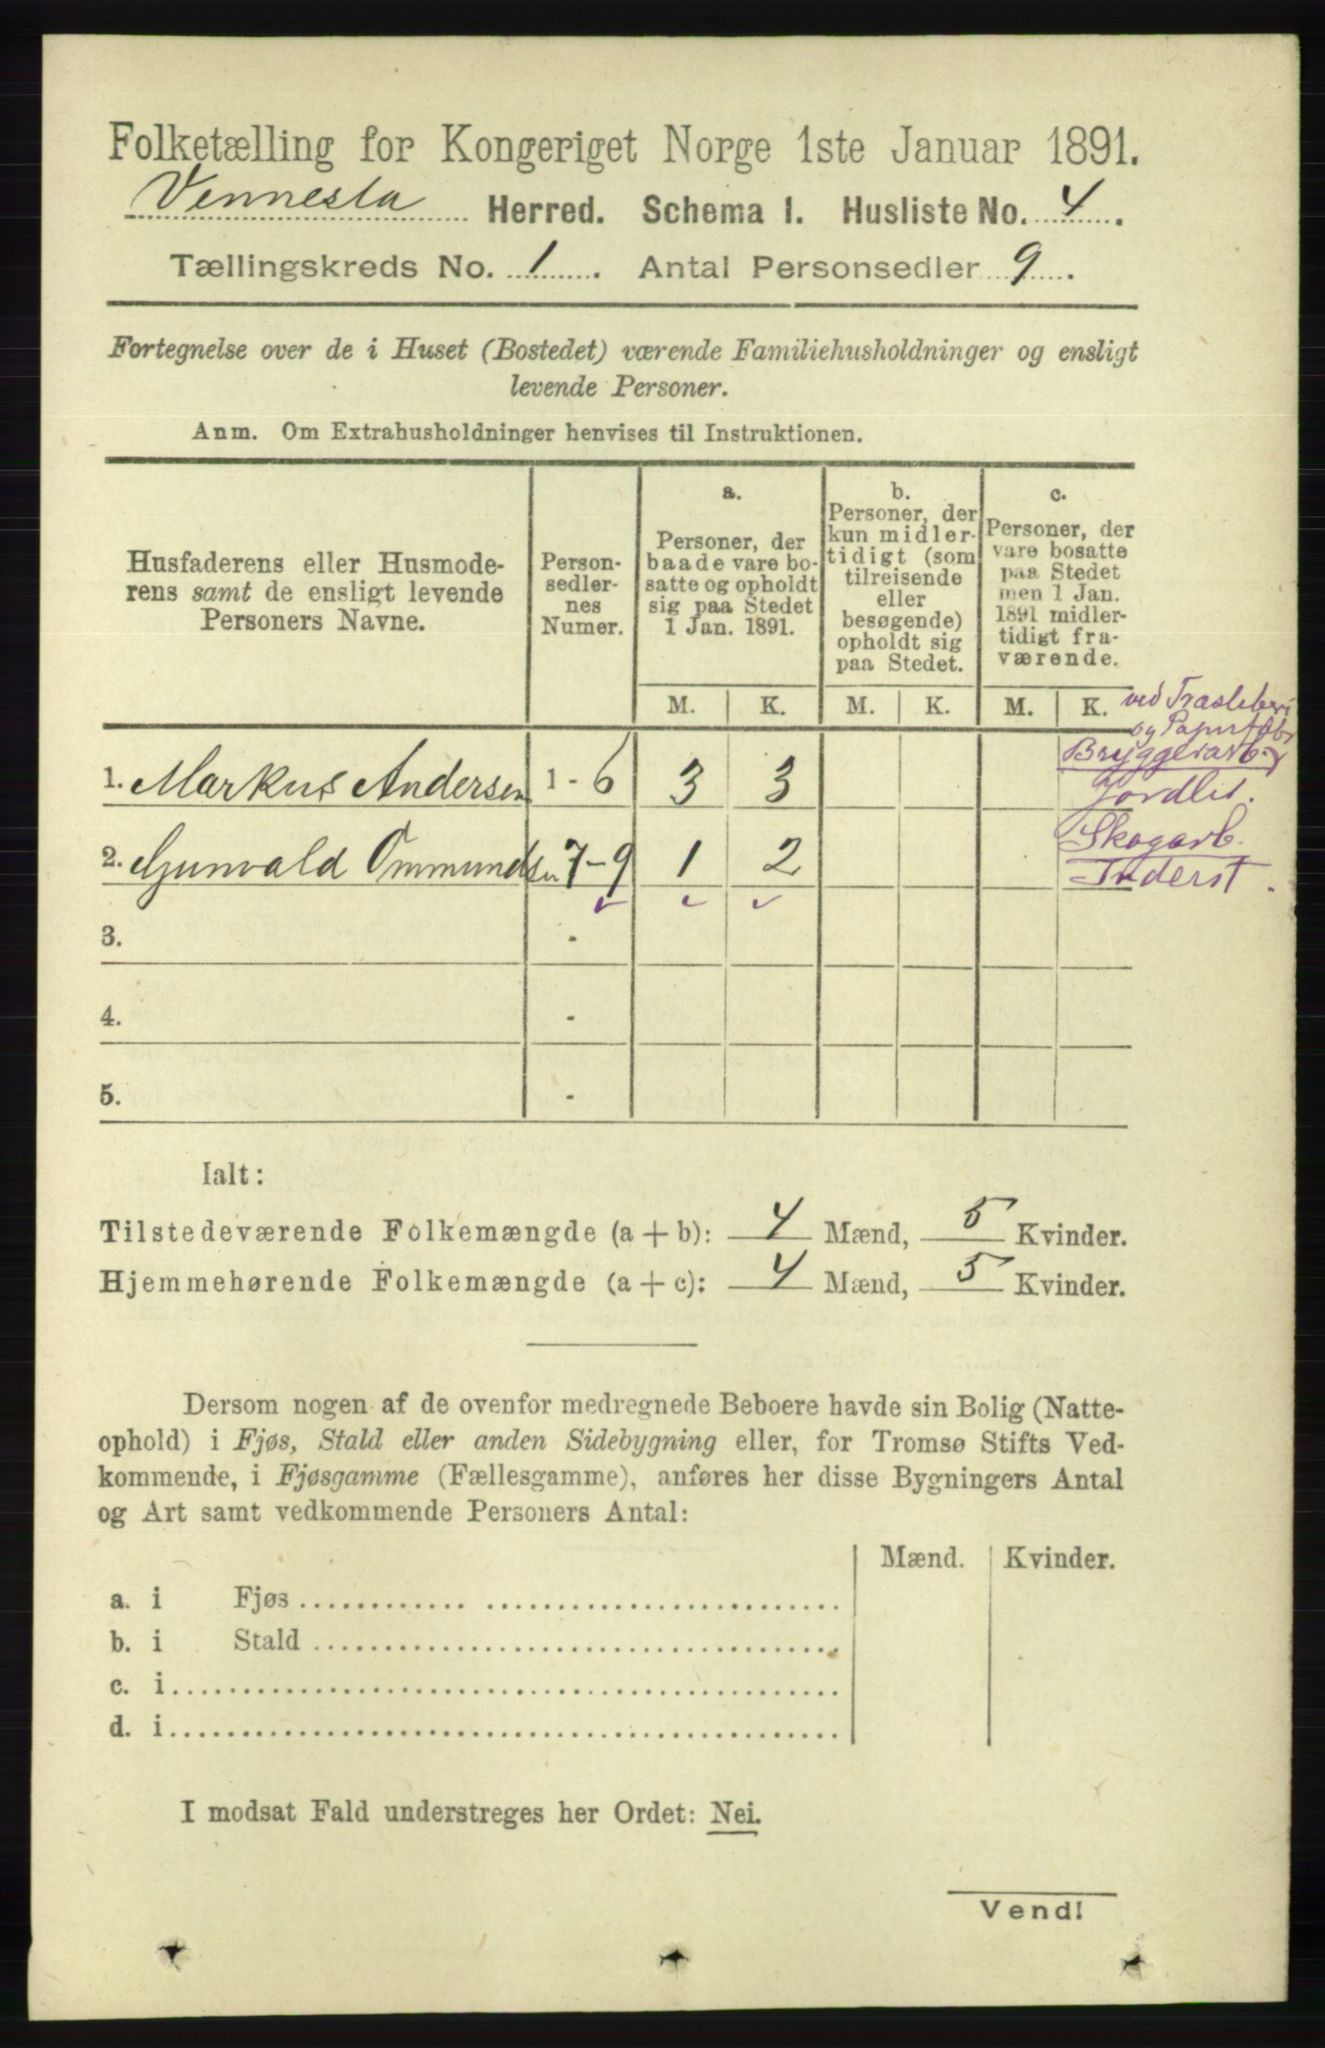 Folketælling for Kongeriget Norge 1ste Januar 1891.
Vennesla Herred. Schema I. Husliste No. 4.
Tællingskreds No. 1. Antal Personsedler 9.
Fortegnelse over de i Huset (Bostedet) værende Familiehusholdninger og ensligt
levende Personer.
Anm. Om Extrahusholdninger henvises til Instruktionen.
Husfaderens eller Husmode-
rens samt de ensligt levende
Personers Navne.
Person-
sedler-
nes
Numer.
a.
Personer, der
baade vare bo-
satte og opholdt
sig paa Stedet
1 Jan. 1891.
b.
Personer, der
kun midler-
tidigt (som
tilreisende
eller
besøgende)
opholdt sig
paa Stedet.
c.
Personer, der
vare bosatte
paa Stedet
men 1 Jan.
1891 midler-
tidigt fra-
værende.
M. K. M. K. M. K.
ved Træsliberi
og
Bryggerarb.
1. Markus Andersen 1 - 6 3 3
Skogarb.
2. Gunvald Ommundsen 7 - 9 1 2
Inderst.
3. -
4. -
5. -
Ialt:
Tilstedeværende Folkemængde (a + b): 4 Mænd, 5 Kvinder.
Hjemmehørende Folkemængde (a + c): 4 Mænd, 5 Kvinder.
Dersom nogen af de ovenfor medregnede Beboere havde sin Bolig (Natte-
ophold) i Fjøs, Stald eller anden Sidebygning eller, for Tromsø Stifts Ved-
kommende, i Fjøsgamme (Fællesgamme), anføres her disse Bygningers Antal
og Art samt vedkommende Personers Antal:
Mænd. Kvinder.
a. i Fjøs
b. i Stald
c. i
d. i
I modsat Fald understreges her Ordet: Nei.
Vend!